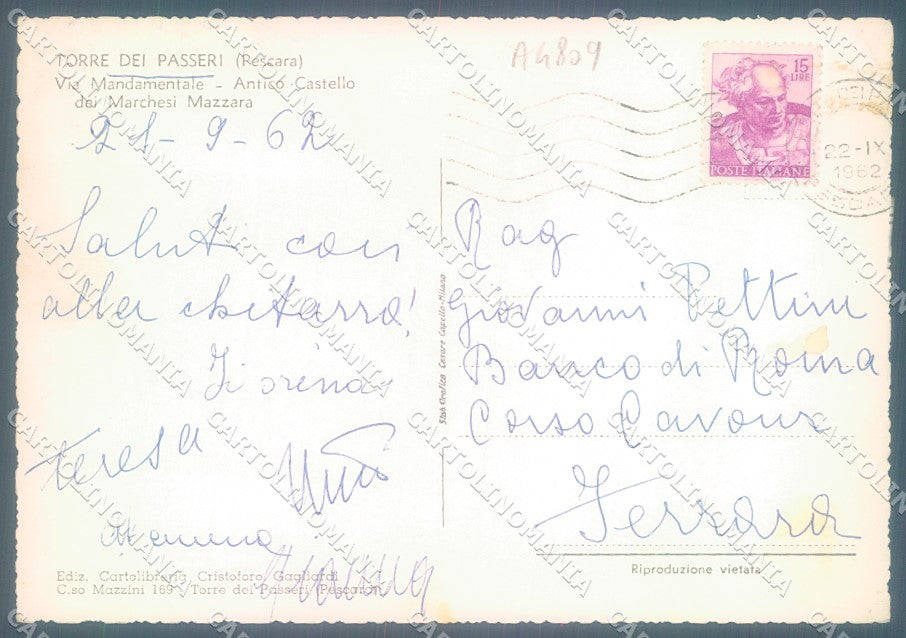 TORRE DEI PASSERI (Pescara)
Via Mandamentale - Antico Castello
dei Marchesi Mazzara
21-9-62
Saluti con
alla chitarra!
Fiorina
Teresa
A4809
15
LIRE
POSTE ITALIANE
22-IX
1962
Rag
Giovanni Pettini
Banco di Roma
Corso Cavour
Ferrara
Riproduzione vietata
Stab. Grafico Cesare Capello-Milano
Ediz. Cartolibreria Cristoforo Gagliardi
C.so Mazzini 169 - Torre dei Passeri (Pescara)
CARTOLINOMANIA